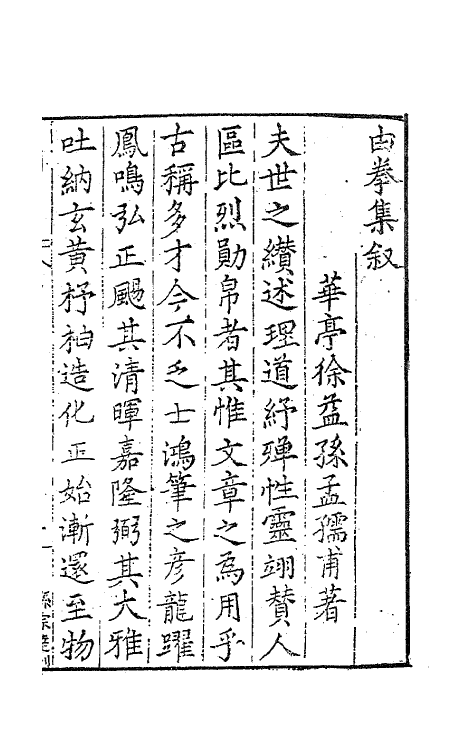 由拳集叙
華亭徐益孫孟孺甫著
夫世之纘述理道紓殫性靈翊贊人
區比烈勛帛者其惟文章之為用乎
古稱多才今不乏士鴻筆之彦龍躍
鳳鳴弘正颺其清暉嘉隆弼其大雅
吐納玄黄杼柚造化正始漸還至物